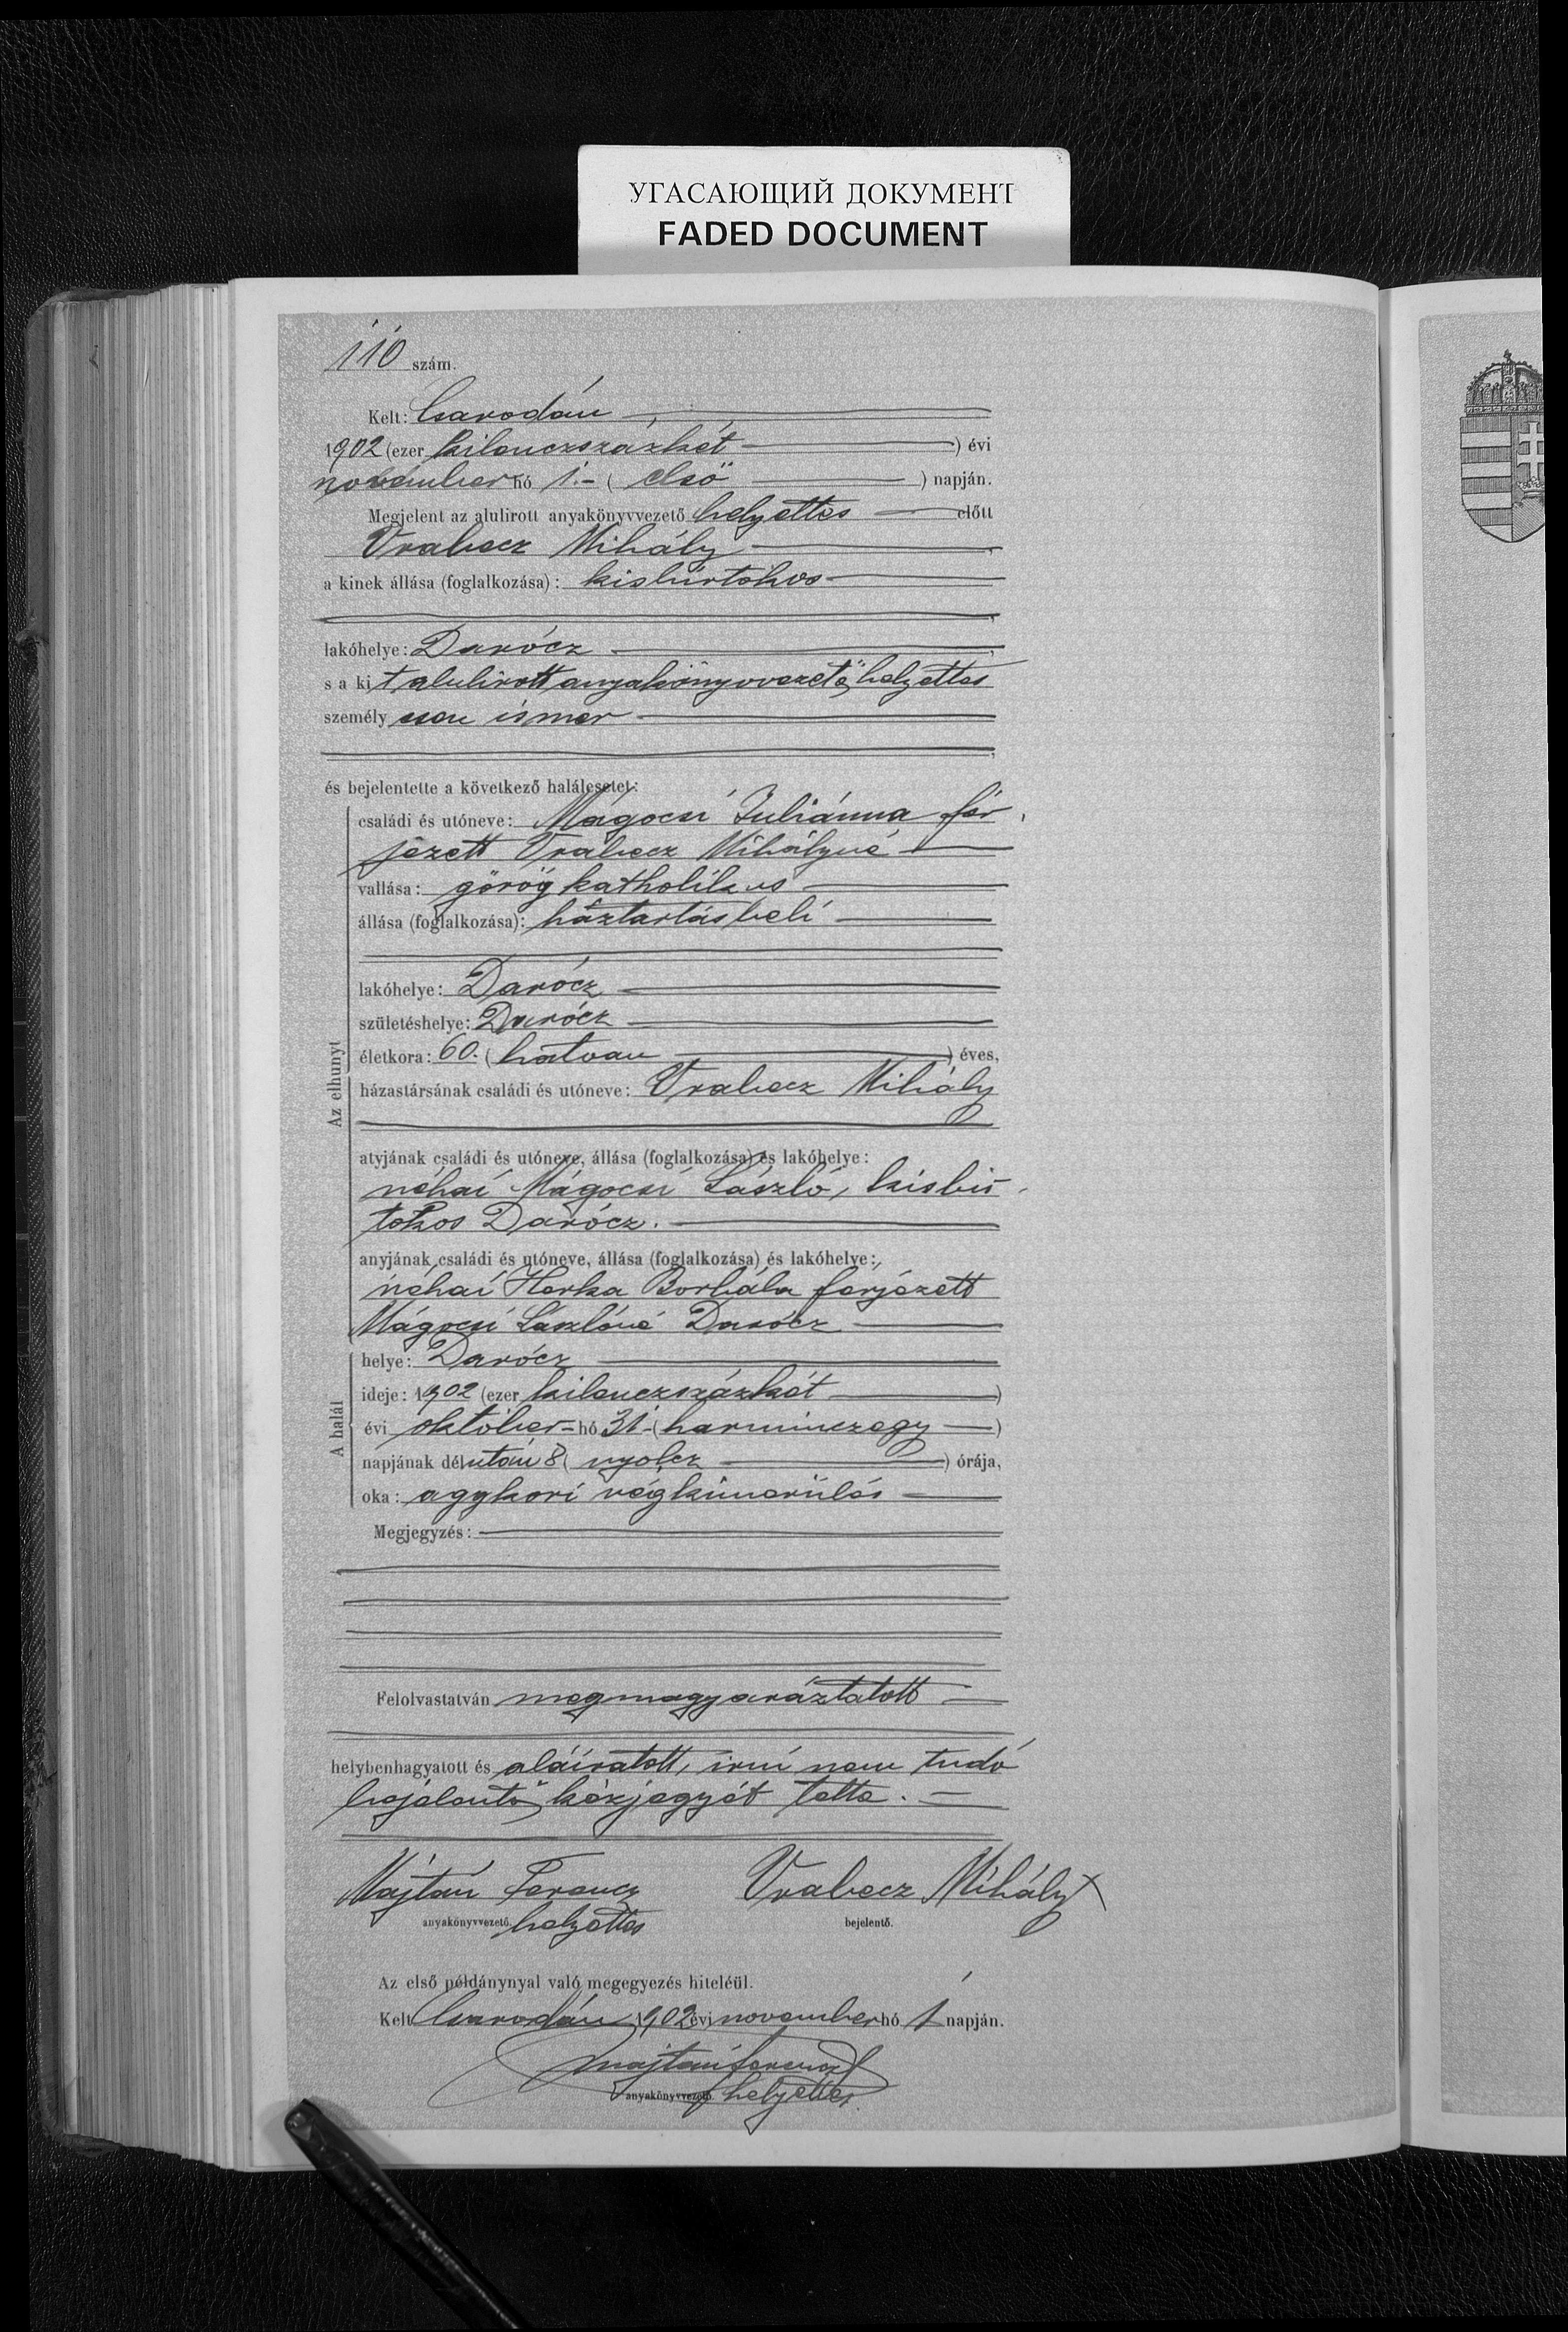 УГАСАЮЩИЙ ДОКУМЕНТ
FADED DOCUMENT
110 szám.
Kelt: Csarodán
1902 (ezer kilenczszázkét ) évi
november hó 1.- ( első ) napján.
Megjelent az alulirott anyakönyvvezető helyettes előtt
Vrabecz Mihály
a kinek állása (foglalkozása): kisbirtokos
lakóhelye: Darócz
s a kit alulirott anyakönyvvezető helyettes
személyesen ismer
és bejelentette a következő halálesetet:
családi és utóneve: Mágocsi Juliánna fér
jezett Vrabecz Mihályné
vallása: görög katholikus
állása (foglalkozása): háztartásbeli
lakóhelye: Darócz
születéshelye: Darócz
életkora: 60. ( hatvan ) éves,
házastársának családi és utóneve: Vrabecz Mihály
Az elhunyt
atyjának családi és utóneve, állása (foglalkozása) és lakóhelye:
néhai Mágocsi László, kisbir
tokos Darócz.
anyjának családi és utóneve, állása (foglalkozása) és lakóhelye:
néhai Herka Borbála ferjezett
Mágocsi Lászlóné Darócz
A halál
helye: Darócz
ideje: 1902 (ezer kilenczszázkét )
évi október-hó 31-( harminczegy )
napjának délután 8 ( nyolcz ) órája,
oka: aggkori végkimerülés
Megjegyzés:
Felolvastatván megmagyaráztatott
helybenhagyatott és aláíratott, irni nem tudó
bejelentő kézjegyét tette.
Majtán Ferencz Vrabecz Mihály X
anyakönyvvezető helyettes bejelentő.
Az első példánynyal való megegyezés hiteléül.
Kelt Csarodán 1902 évi november hó 1 napján.
Majtán Ferencz
anyakönyvvezető helyettes.